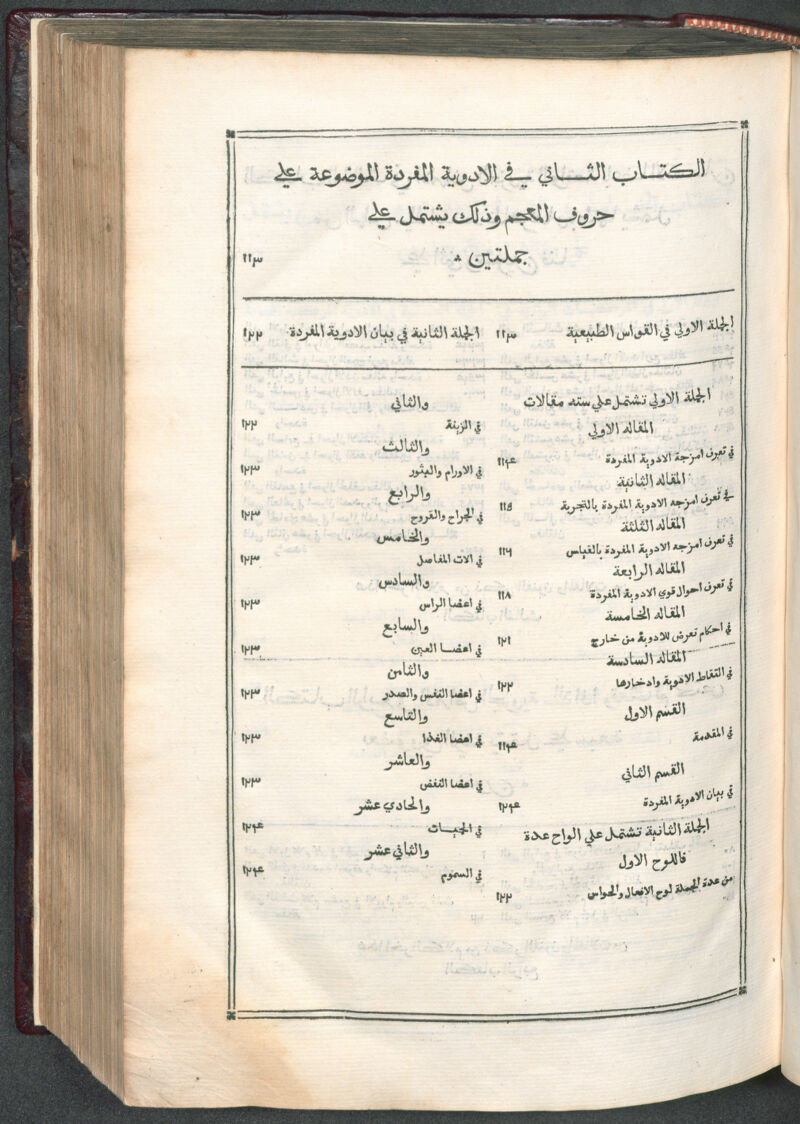 الكتاب الثاني في الادوية المفردة الموضوعة علي
حروف المعجم وذلك يشتمل علي
جملتين * ١١٣
الجملة الاولي في القواس الطبيعية ١١٣
الجملة الثانية في بيان الادوية المفردة ١٢٢
الجملة الاولي تشتمل علي سته مقالات
المقاله الاولي
في تعرف امزجة الادوية المفردة ١١٤
المقاله الثانية
في تعرف امزجه الادوية المفردة بالتجربة ١١٥
المقاله الثلثة
في تعرف امزجه الادوية المفردة بالقياس ١١٦
المقاله الرابعة
في تعرف احوال قوي الادوية المفردة ١١٨
المقاله الخامسة
في احكام تعرض للادوية من خارج ١٢١
المقاله السادسة
في التقاط الادوية وادخارها ١٢٢
القسم الاول
في المقدمة ١١٤
القسم الثاني
في بيان الادوية المفردة ١٢٤
الجملة الثانية تشتمل علي الواح عدة
فاللوح الاول
من عدة الجملة لوح الافعال والخواس ١٢٢
والثاني
في الزينة ١٢٢
والثالث
في الاورام والبثور ١٢٣
والرابع
في الجراح والقروح ١٢٣
والخامس
في الات المفاصل ١٢٣
والسادس
في اعضا الراس ١٢٣
والسابع
في اعضا العين ١٢٣
والثامن
في اعضا النفس والصدر ١٢٣
والتاسع
في اعضا الغذا ١٢٣
والعاشر
في اعضا النفض ١٢٣
والحادي عشر
في الحميات ١٢٤
والثاني عشر
في السموم ١٢٤